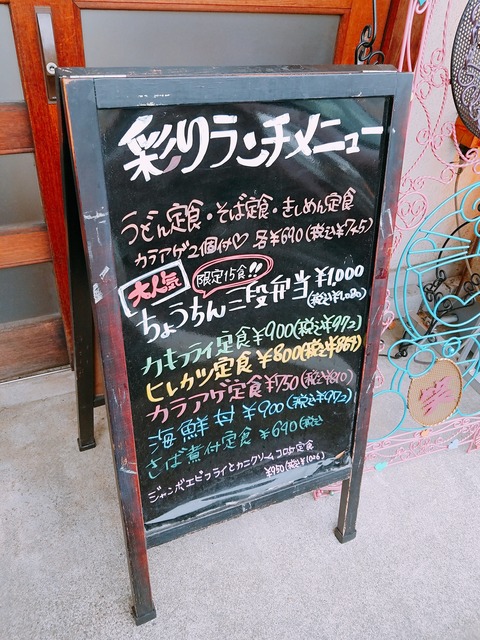 彩りランチメニュー
うどん定食・そば定食・きしめん定食
カラアゲ2個付♡ 各¥690(税込¥745)
大人気 限定15食!!
ちょうちん三段弁当 ¥1,000
(税込¥1,080)
カキフライ定食 ¥900(税込¥972)
ヒレカツ定食 ¥800(税込¥864)
カラアゲ定食 ¥750(税込¥810)
海鮮丼 ¥900(税込¥972)
さば煮付定食 ¥690(税込
ジャンボエビフライとカニクリームコロッケ定食
¥950(税込¥1026)